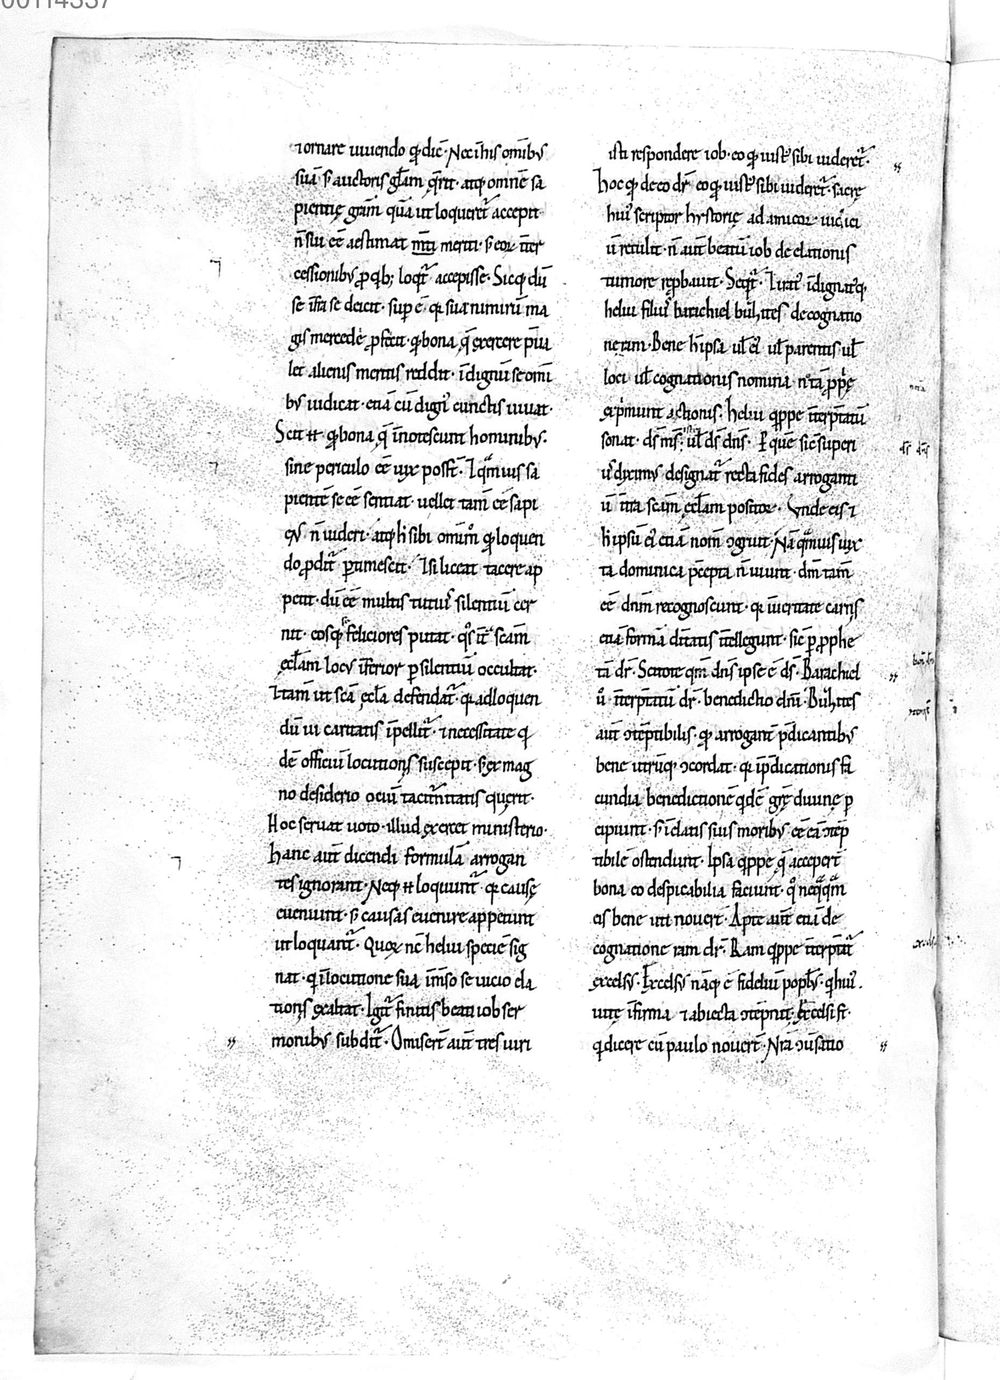 ⁊ ornare uiuendo qđ dic̄. Nec in his omībꝰ
suā. s; auctoris gl̄am q̄rit. atq; omnē sa
pientię gr̄am quā ut loqueret̄ accepit.
n̄ sui ēē aestimat meriti. s; eoꝝ int̄
cessionibꝰ ꝓ qb; loqt̄ accepisse. Sicq; dū
se infra se deicit. sup ē. qꝛ sua nimirū ma
gis mercedē ꝓficit. qđ bona q̄ exercere p̄ua
let alienis meritis reddit. īdignū se omī
bꝰ iudicat. etiā cū dignꝰ cunctis uiuat.
Scit .n. qđ bona q̄ īnotescunt hominibꝰ.
sine periculo ēē uix poss̄t. Iqͣmuis sa
pientē se ēē sentiat. uellet tam̄ ēē sapi
ens n̄ uideri. atq; h̓ sibi omīm̊ qđ loquen
do ꝓdit̄ ꝑtimescit. Ī si liceat tacere ap
petit. dū ēē multis tutiꝰ silentiū cer
nit. eosq; feliciores putat. q̊s int̄ scām
ęccl̄am locꝰ īferior ꝑ silentiū occultat.
⁊ tam̄ ut scā ęccl̄a defendat̄. qꝛ ad loquen
dū ui caritatis īpellit̄. ⁊ necessitate q̇
dē officiū locutionis suscepit. s; ex mag
no desiderio ociū taciturnitatis querit.
Hoc seruat uoto. illud exercet ministerio.
Hanc aut̄ dicendi formulā arrogan
tes ignorant. Neq; .n. loquunt̄ qꝛ causę
eueniunt. s; causas euenire appetunt
ut loquant̄. Quoꝝ nc̄ heliu speciē sig
nat. q̇ in locutione sua īm̄so se uicio ela
tionis exaltat. Igit̄ finitis beati iob ser
monibꝰ subdit̄. Omiser̄t aut̄ tres uiri
isti respondere iob. eo qđ iustꝰ sibi uideret̄.
Hoc qđ de eo dr̄ eo qđ iustꝰ sibi uideret̄. sacrę
huiꝰ scriptor hystorię ad amicoꝝ uic̄ ei
ū retulit. n̄ aut̄ beatū iob de elationis
tumore rep̱bauit. Seqt̄. Iratꝰ īdignatꝰq;
heliu filiuꝰ barachiel buzites de cognatio
ne ram. Bene h̓ ipsa ul̄ eiꝰ ul̄ parentis ul̄
loci ul̄ cognationis nomina nota ꝓp̓ę
exp̓munt actionis. heliu q̇ppe īterptatū
sonat. ds̄ mš. ul̄ ds̄ dn̄s. Ꝑ quē sic superi
ꝰ diximꝰ designat̄ recta fides arroganti
ū intra scam̄ ęccl̄am positoꝝ. Vnde eis ⁊
h̓ ipsū eiꝰ etiā nom̄ ↄgruit. Nā qͣmuis iux
ta dominica p̄cepta n̄ uiuūt. dm̄ tam̄
ēē dnm̄ recognoscunt. qꝛ in ueritate carnis
etiā formā diuinitatis intellegunt. sic ꝑ ꝓphe
tā dr̄. Scitote qm̄ dn̄s ipse ē ds̄. Barachiel
ū̊ īterptatū dr̄. benedictio dei. Buzites
aut̄ ↄtēptibilis. qđ arrogant̄ p̄dicantibꝰ
bene utrūq; ↄcordat. qꝛ in p̄dicationis fa
cundia benedictionē q̇dē grę̄ diuinę ꝑ
cipiunt. s; ī elatis suis moribꝰ ēē eā ↄtēp
tibilē ostendunt. Ipsa q̇ppe q̄ acceper̄t
bona eo despicabilia faciunt. q̊ neqͣqͣm
eis bene uti nouer̄t. Apte aut̄ etiā de
cognatione ram dr̄. Ram q̇ppe īterptat̄
excelsꝰ. Excelsꝰ nāq; ē fideliū popl̄s. q̇ huiꝰ
uitę īfirma ⁊ abiecta ↄtēpnit. Excelsi s̄t.
q̇ dicere cū paulo nouer̄t. Nr̄a ↄuersatio